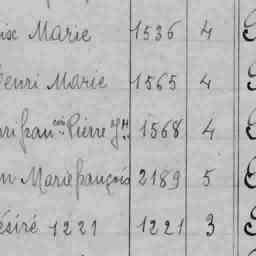 Marie 1536 4
Henri Marie 1565 4
ri franç. Pierre Jh 1568 4
n Marie françois 2189 5
ésiré 1221 1221 3